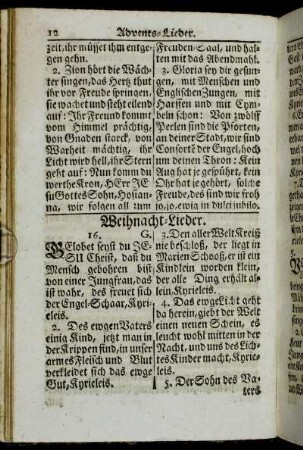 12 Advents-Lieder.
zeit, ihr müsset ihm entge-
gen gehn.
2. Zion hört die Wäch-
ter singen, das Hertz thut
ihr vor Freude springen,
sie wachet und steht eilend
auf: Ihr Freund kommt
vom Himmel prächtig,
von Gnaden starck, von
Warheit mächtig, ihr
Licht wird hell, ihr Stern
geht auf: Nun komm du
werthe Kron, HErr JE-
su Gottes Sohn, Hosian-
na, wir folgen all zum
Freuden-Saal, und hal-
ten mit das Abendmahl.
3. Gloria sey dir gesun-
gen, mit Menschen und
Englischen Zungen, mit
Harffen und mit Cym-
beln schon: Von zwölff
Perlen sind die Pforten,
an deiner Stadt, wir sind
Consorte der Engel, hoch
um deinen Thron: Kein
Aug hat je gespührt, kein
Ohr hat je gehört, solche
Freude, des sind wir froh
jo, jo, ewig in dulci jubilo.
Weihnacht-Lieder.
16. G.
GElobet seyst du JE-
SU Christ, daß du
Mensch gebohren bist
von einer Jungfrau, das
ist wahr, des freuet sich
der Engel-Schaar, Kyri-
eleis.
2. Des ewgen Vaters
einig Kind, jetzt man in
der Krippen find, in unser
armes Fleisch und Blut
verkleidet sich das ewge
Gut, Kyrieleis.
3. Den aller Welt Kreiß
nie beschloß, der liegt in
Marien Schooß, er ist ein
Kindlein worden klein,
der alle Ding erhält al-
lein, Kyrieleis.
4. Das ewge Licht geht
da herein, giebt der Welt
einen neuen Schein, es
leucht wohl mitten in der
Nacht, und uns des Lich-
tes Kinder macht, Kyrie-
leis.
5. Der Sohn des Va-
ters